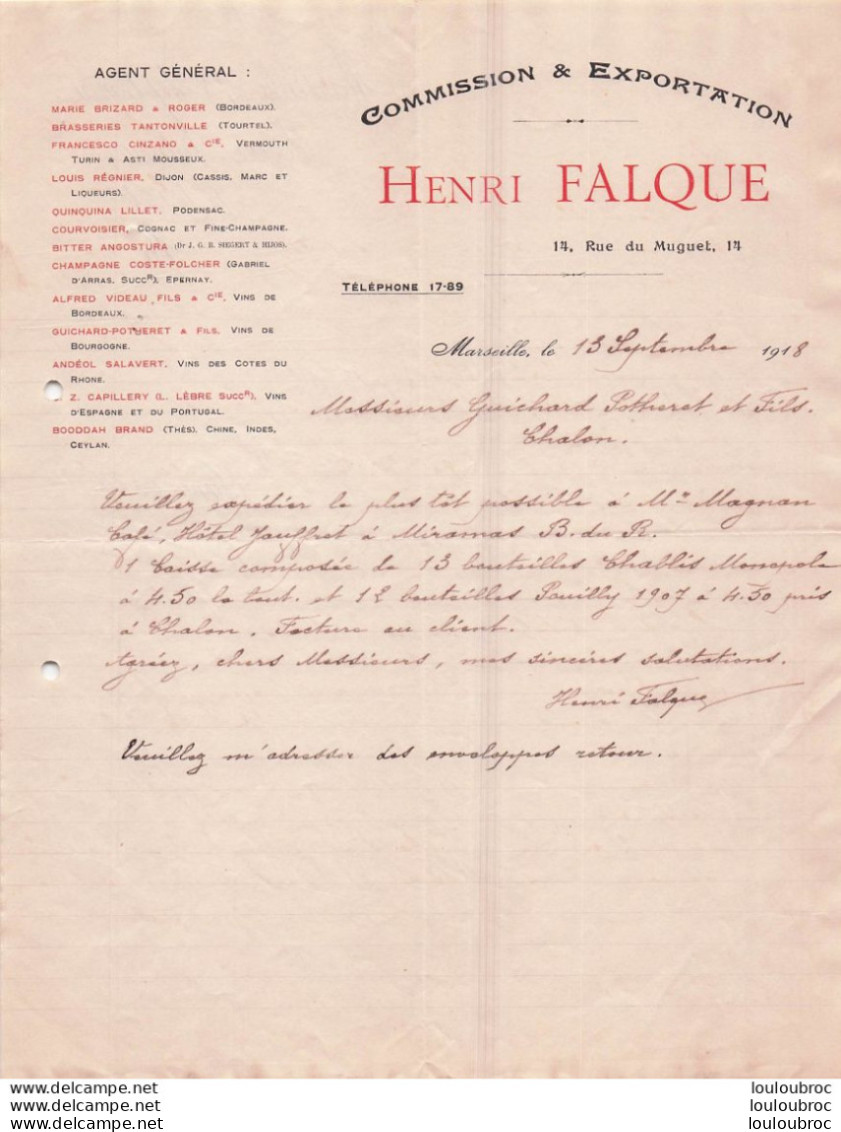 AGENT GÉNÉRAL :
MARIE BRIZARD & ROGER (BORDEAUX).
BRASSERIES TANTONVILLE (TOURTEL).
FRANCESCO CINZANO & CIE, VERMOUTH
TURIN & ASTI MOUSSEUX.
LOUIS RÉGNIER, DIJON (CASSIS, MARC ET
LIQUEURS).
QUINQUINA LILLET, PODENSAC.
COURVOISIER, COGNAC ET FINE-CHAMPAGNE.
BITTER ANGOSTURA (Dr J. G. B. SIEGERT & HIJOS).
CHAMPAGNE COSTE-FOLCHER (GABRIEL
D'ARRAS, SUCCR), EPERNAY.
ALFRED VIDEAU FILS & CIE, VINS DE
BORDEAUX.
GUICHARD-POTHERET & FILS, VINS DE
BOURGOGNE.
ANDÉOL SALAVERT, VINS DES COTES DU
RHONE.
Z. CAPILLERY (L. LÈBRE SUCCR), VINS
D'ESPAGNE ET DU PORTUGAL.
BOODDAH BRAND (THÉS), CHINE, INDES,
CEYLAN.
COMMISSION & EXPORTATION
HENRI FALQUE
14, Rue du Muguet, 14
TÉLÉPHONE 17-89
Marseille, le 13 Septembre 1918
Messieurs Guichard Potheret et Fils.
Chalon.
Veuillez expédier le plus tôt possible à Mr Magnan
Café, Hôtel Jauffret à Miramas B. du R.
1 Caisse composée de 13 bouteilles Chablis Monopole
à 4.50 le tout. et 12 bouteilles Pouilly 1907 à 4.50 pris
à Chalon. Facture au client.
Agréez, chers Messieurs, mes sincères salutations.
Henri Falque
Veuillez m'adresser des enveloppes retour.
www.delcampe.net
www.delcampe.net
www.delcampe.net
louloubroc
louloubroc
louloubroc